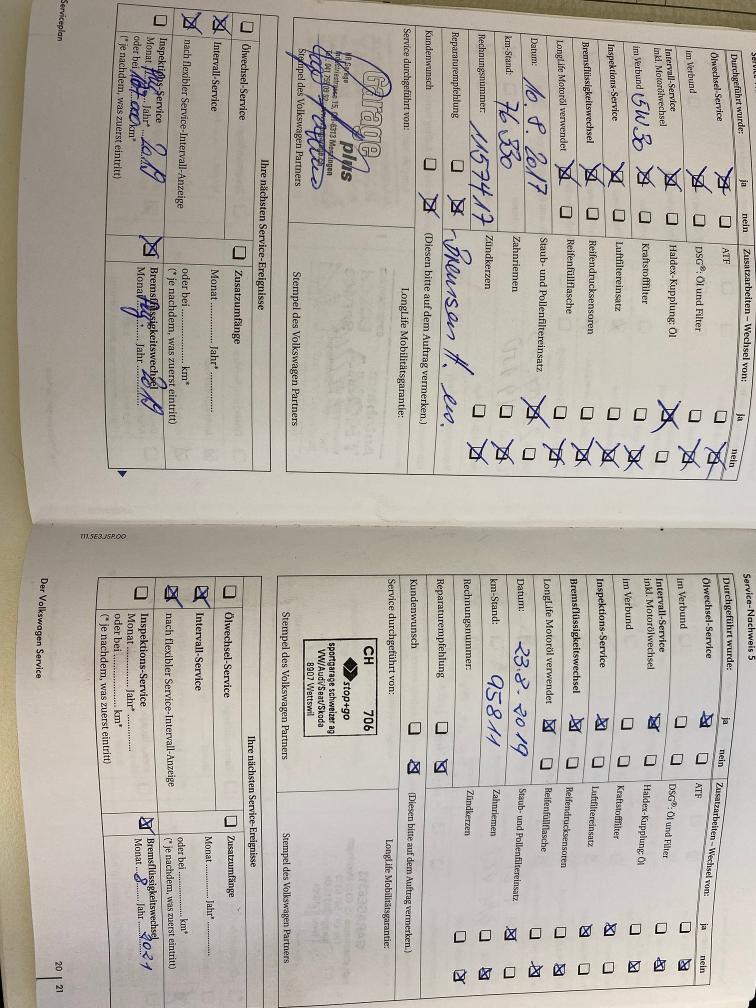 Durchgeführt wurde:
ja
nein
Zusatzarbeiten – Wechsel von:
ja
nein
Ölwechsel-Service
ATF
im Verbund
DSG®: Öl und Filter
Intervall-Service
inkl. Motorölwechsel
Haldex-Kupplung: Öl
im Verbund 5W30
Kraftstofffilter
Inspektions-Service
Luftfiltereinsatz
Bremsflüssigkeitswechsel
Reifendrucksensoren
LongLife Motoröl verwendet
Reifenfüllflasche
Datum: 10.8.2017
Staub- und Pollenfiltereinsatz
km-Stand: 76330
Zahnriemen
Rechnungsnummer: 1157417
Zündkerzen
Reparaturempfehlung
Kundenwunsch
(Diesen bitte auf dem Auftrag vermerken.)
Service durchgeführt von:
LongLife Mobilitätsgarantie:
Garage
plus
Stempel des Volkswagen Partners
Stempel des Volkswagen Partners
Ihre nächsten Service-Ereignisse
Ölwechsel-Service
Zusatzumfänge
Intervall-Service
Monat ............... Jahr* ...............
nach flexibler Service-Intervall-Anzeige
oder bei ............... km*
(* je nachdem, was zuerst eintritt)
Inspektions-Service
Monat Aug. Jahr 2019
oder bei 107.000 km*
(* je nachdem, was zuerst eintritt)
Bremsflüssigkeitswechsel
Monat Aug. Jahr 2019
Serviceplan
111.5E3.JSP.00
Service-Nachweis 5
Durchgeführt wurde:
ja
nein
Zusatzarbeiten – Wechsel von:
ja
nein
Ölwechsel-Service
ATF
im Verbund
DSG®: Öl und Filter
Intervall-Service
inkl. Motorölwechsel
Haldex-Kupplung: Öl
im Verbund
Kraftstofffilter
Inspektions-Service
Luftfiltereinsatz
Bremsflüssigkeitswechsel
Reifendrucksensoren
LongLife Motoröl verwendet
Reifenfüllflasche
Datum: 23.8.2019
Staub- und Pollenfiltereinsatz
km-Stand: 95811
Zahnriemen
Rechnungsnummer:
Zündkerzen
Reparaturempfehlung
Kundenwunsch
(Diesen bitte auf dem Auftrag vermerken.)
Service durchgeführt von:
LongLife Mobilitätsgarantie:
CH 706
stop+go
sportgarage schweizer ag
VW/Audi/Seat/Skoda
8907 Wettswil
Stempel des Volkswagen Partners
Stempel des Volkswagen Partners
Ihre nächsten Service-Ereignisse
Ölwechsel-Service
Zusatzumfänge
Intervall-Service
Monat ............... Jahr* ...............
nach flexibler Service-Intervall-Anzeige
oder bei ............... km*
(* je nachdem, was zuerst eintritt)
Inspektions-Service
Monat ............... Jahr* ...............
oder bei ............... km*
(* je nachdem, was zuerst eintritt)
Bremsflüssigkeitswechsel
Monat 8 Jahr 2021
Der Volkswagen Service
20 | 21